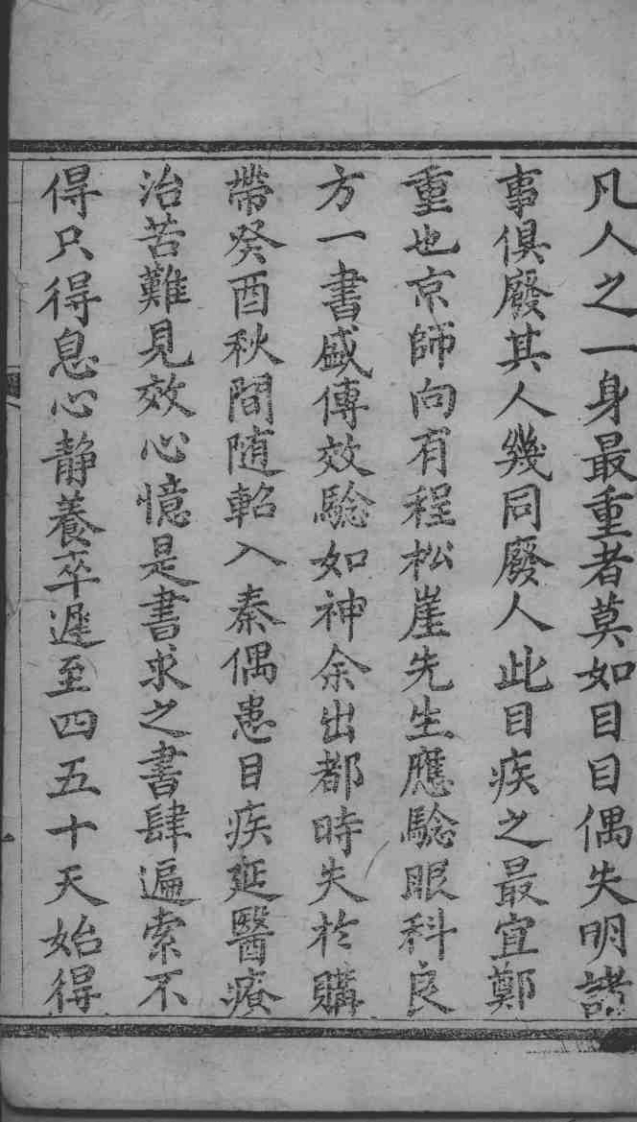 凡人之一身最重者莫如目目偶失明諸
事俱廢其人幾同廢人此目疾之最宜鄭
重也京師向有程松崖先生應驗眼科良
方一書盛傳效驗如神余出都時失於購
帶癸酉秋間随軺入秦偶患目疾延醫療
治苦難見效心憶是書求之書肆遍索不
得只得息心靜養卒遲至四五十天始得